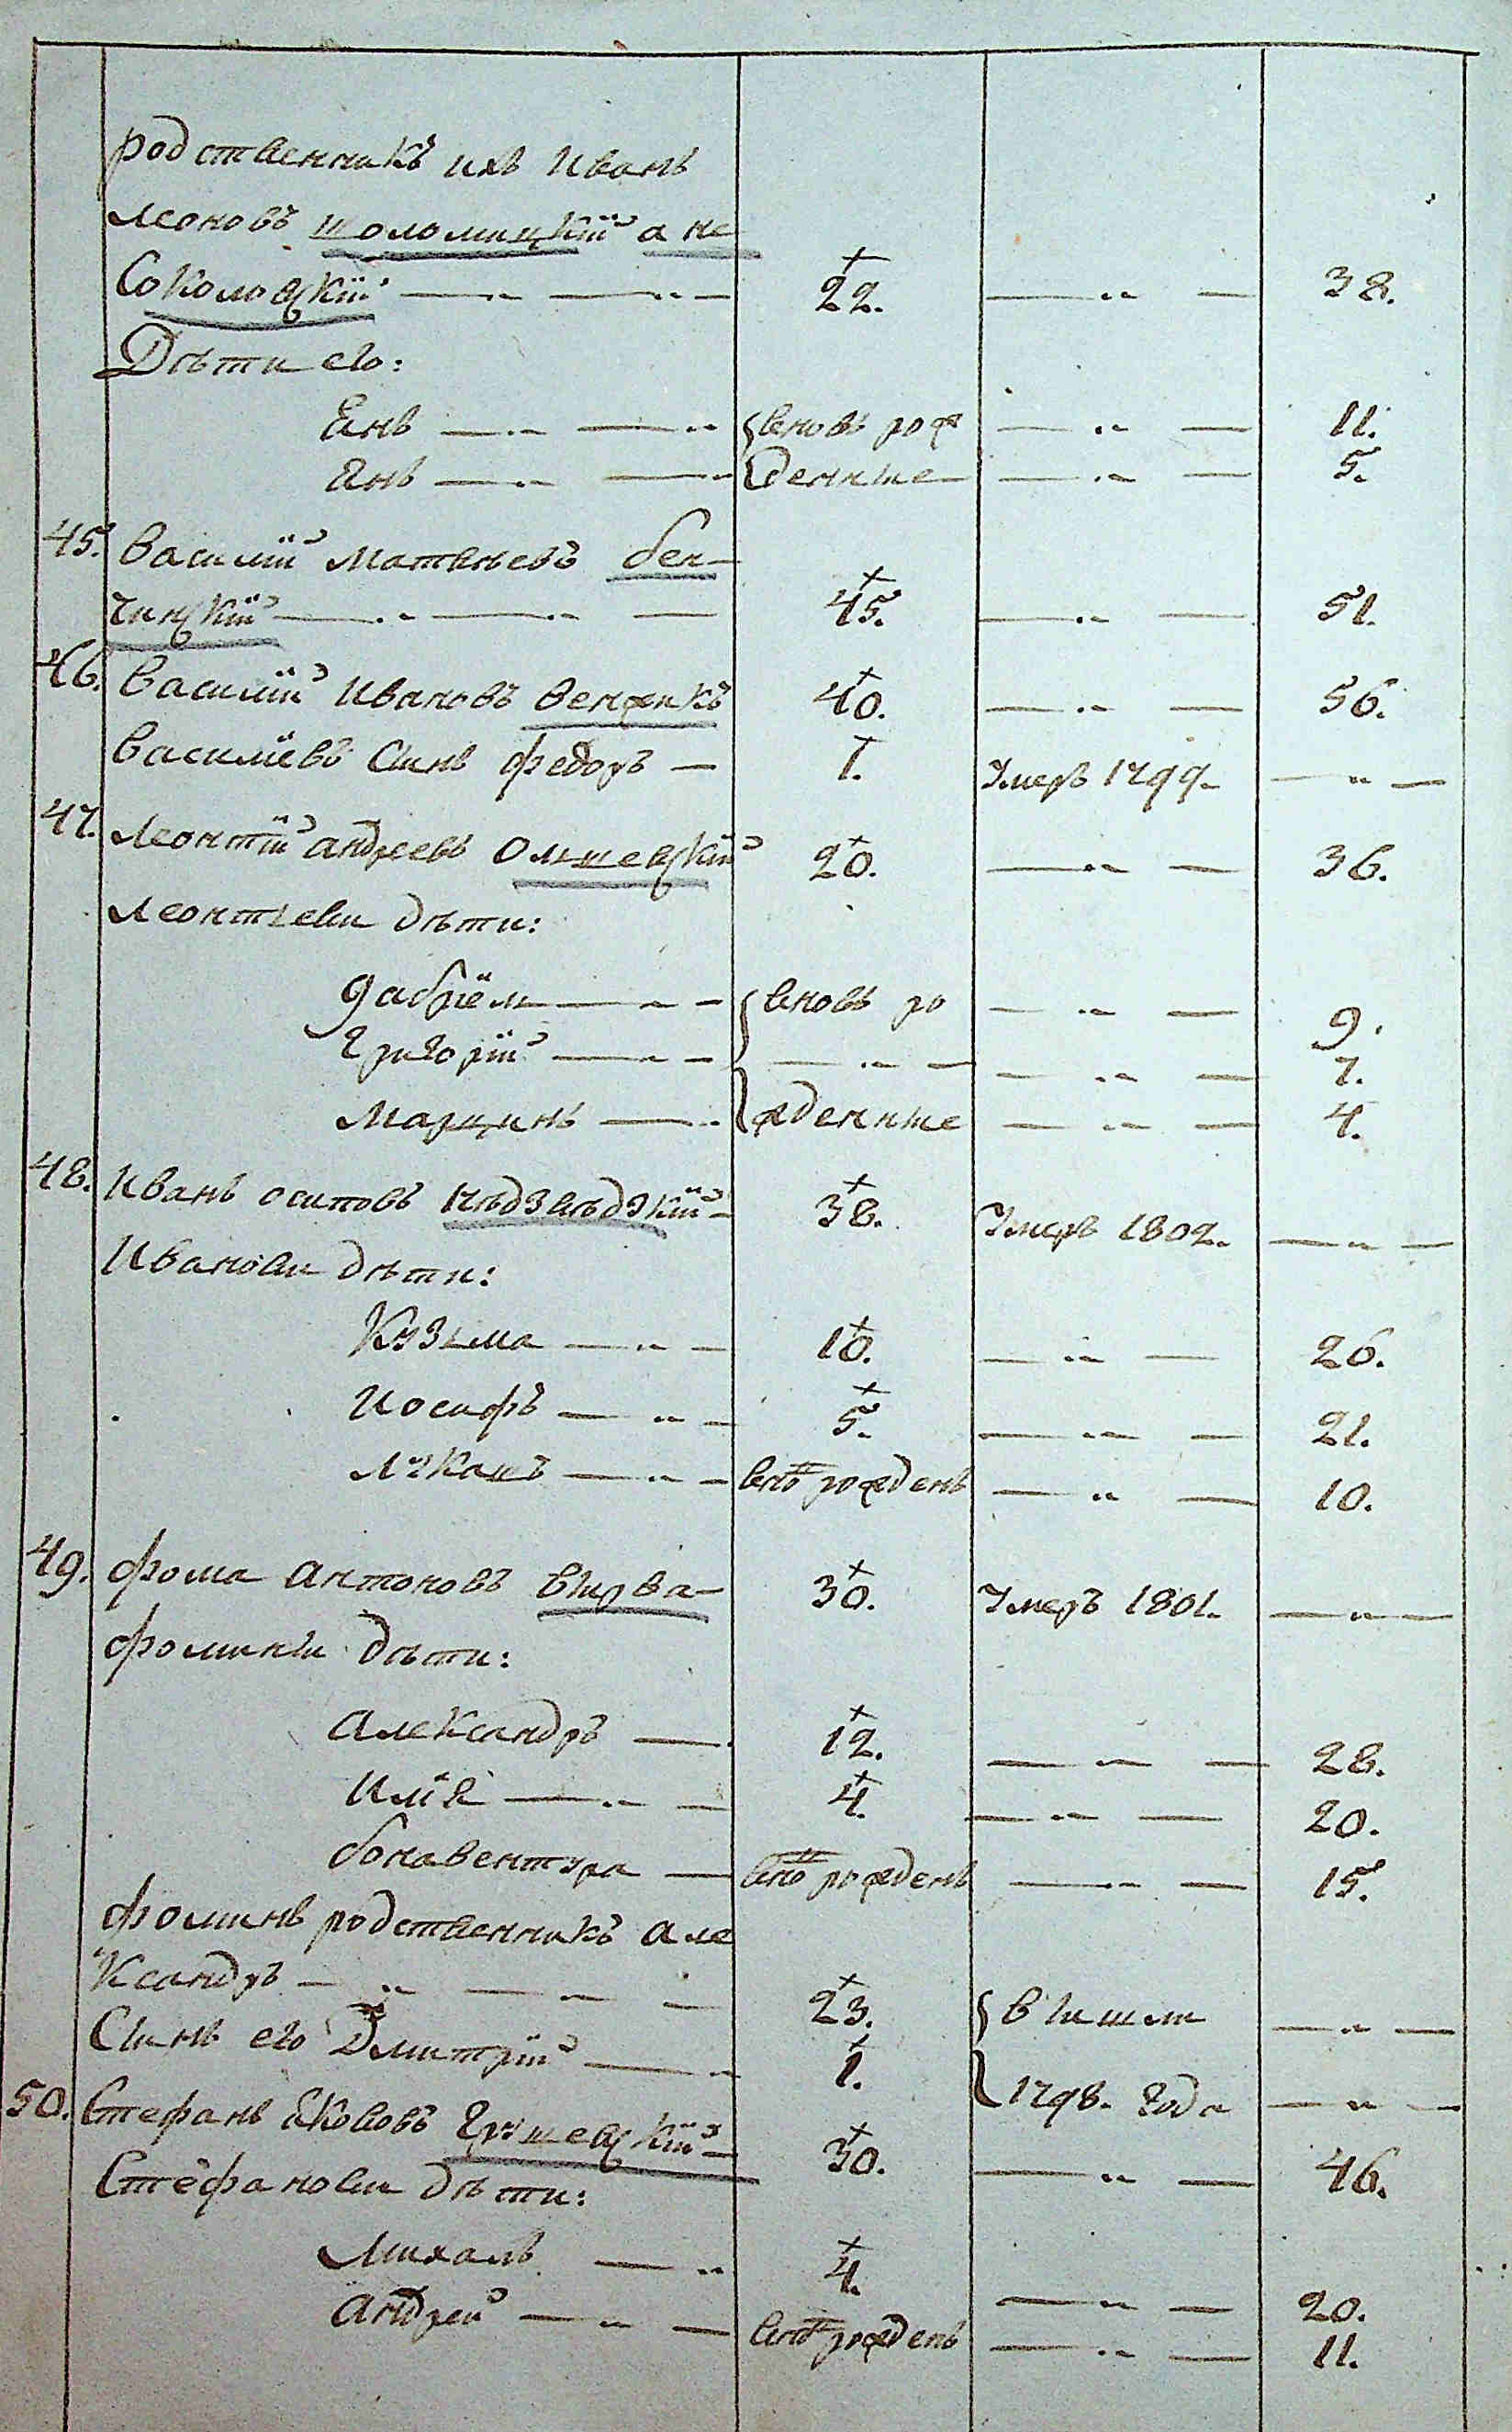 родственникъ ихъ Иванъ
Леоновъ Шоломицкій а не
Соколовскій — 22. — 38.
Дѣти его:
Янъ — вновь рож — 11.
Янъ — денные — 5.
45. Василій Матвѣевъ Бен-
чинскій — 45. — 51.
46. Василій Ивановъ Венжикъ 40. — 56.
Василіевъ сынъ Федоръ — 1. Умеръ 1799. —
47. Леонтій Андреевъ Ольшевскій 20. — 36.
Леонтьевы дѣти:
Габріель — вновь ро — 9.
Григорій — — 7.
Марцинъ — жденные — 4.
48. Иванъ Осиповъ Нѣдзвѣдзкій — 38. Умеръ 1802. —
Ивановы дѣти:
Кузьма — 10. — 26.
Иосифъ — 5. — 21.
Лукашъ — внo рожденъ — 10.
49. Фома Антоновъ Вырва — 30. Умеръ 1801. —
Фомины дѣти:
Александръ — 12. — 28.
Илія — 4. — 20.
Бонавентура — внo рожденъ — 15.
Фоминъ родственникъ Але
ксандръ — 23. вышли —
Сынъ его Дмитрій — 1. 1798. года —
50. Стефанъ Якововъ Грушевскій — 30. — 46.
Стефановы дѣти:
Михалъ — 4. — 20.
Андрей — внo рожденъ — 11.